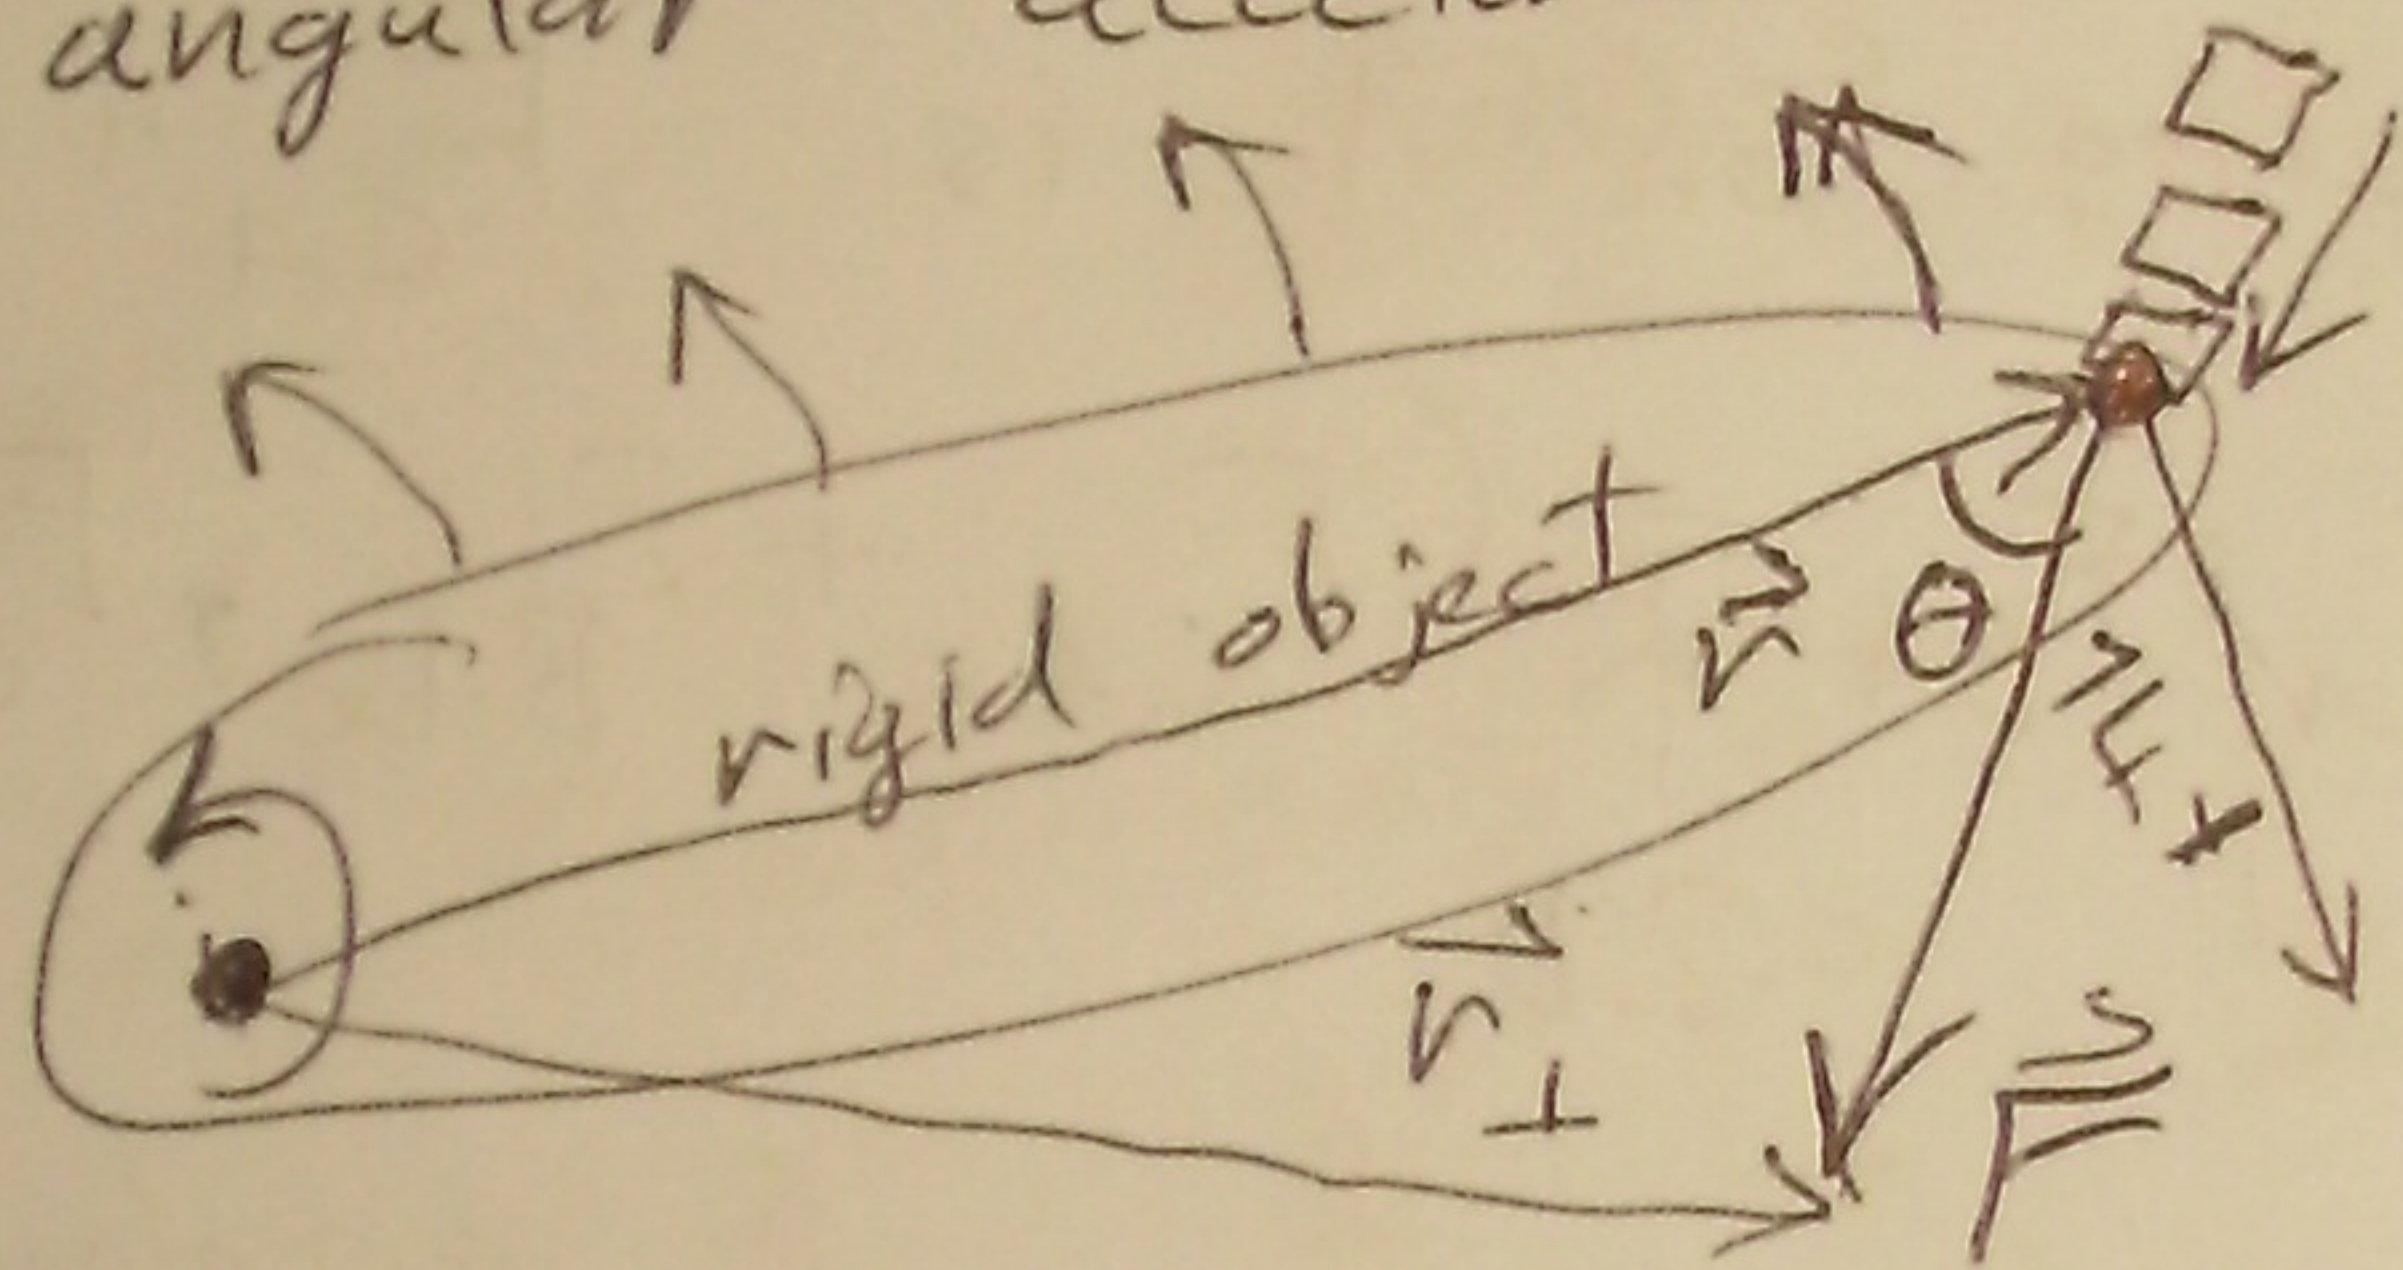 angular
rigid object
r⃗ θ
F⃗⊥
r⃗⊥
F⃗